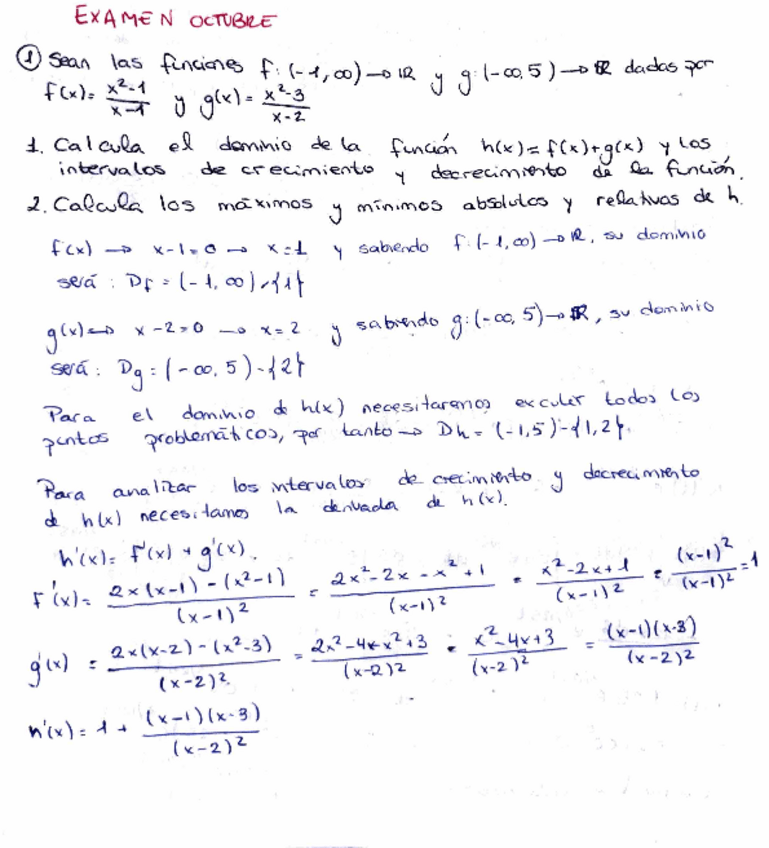 EXAMEN OCTUBRE
① Sean las funciones f:(-1,∞)→ℝ y g:(-∞,5)→ℝ dadas por
f(x)= (x²-1)/(x-1) y g(x)= (x²-3)/(x-2)
1. Calcula el dominio de la función h(x)=f(x)+g(x) y los
intervalos de crecimiento y decrecimiento de la función.
2. Calcula los máximos y mínimos absolutos y relativos de h.
f(x) → x-1=0 → x=1 y sabiendo f:(-1,∞)→ℝ, su dominio
será: Df = (-1,∞)-{1}
g(x) → x-2=0 → x=2 y sabiendo g:(-∞,5)→ℝ, su dominio
será: Dg = (-∞,5)-{2}
Para el dominio de h(x) necesitaremos excluir todos los
puntos problemáticos, por tanto → Dh = (-1,5)-{1,2}.
Para analizar los intervalos de crecimiento y decrecimiento
de h(x) necesitamos la derivada de h(x).
h'(x)= f'(x) + g'(x).
f'(x)= (2x(x-1)-(x²-1))/(x-1)² = (2x²-2x-x²+1)/(x-1)² = (x²-2x+1)/(x-1)² = (x-1)²/(x-1)² = 1
g'(x) = (2x(x-2)-(x²-3))/(x-2)² = (2x²-4x-x²+3)/(x-2)² = (x²-4x+3)/(x-2)² = (x-1)(x-3)/(x-2)²
h'(x)= 1 + (x-1)(x-3)/(x-2)²